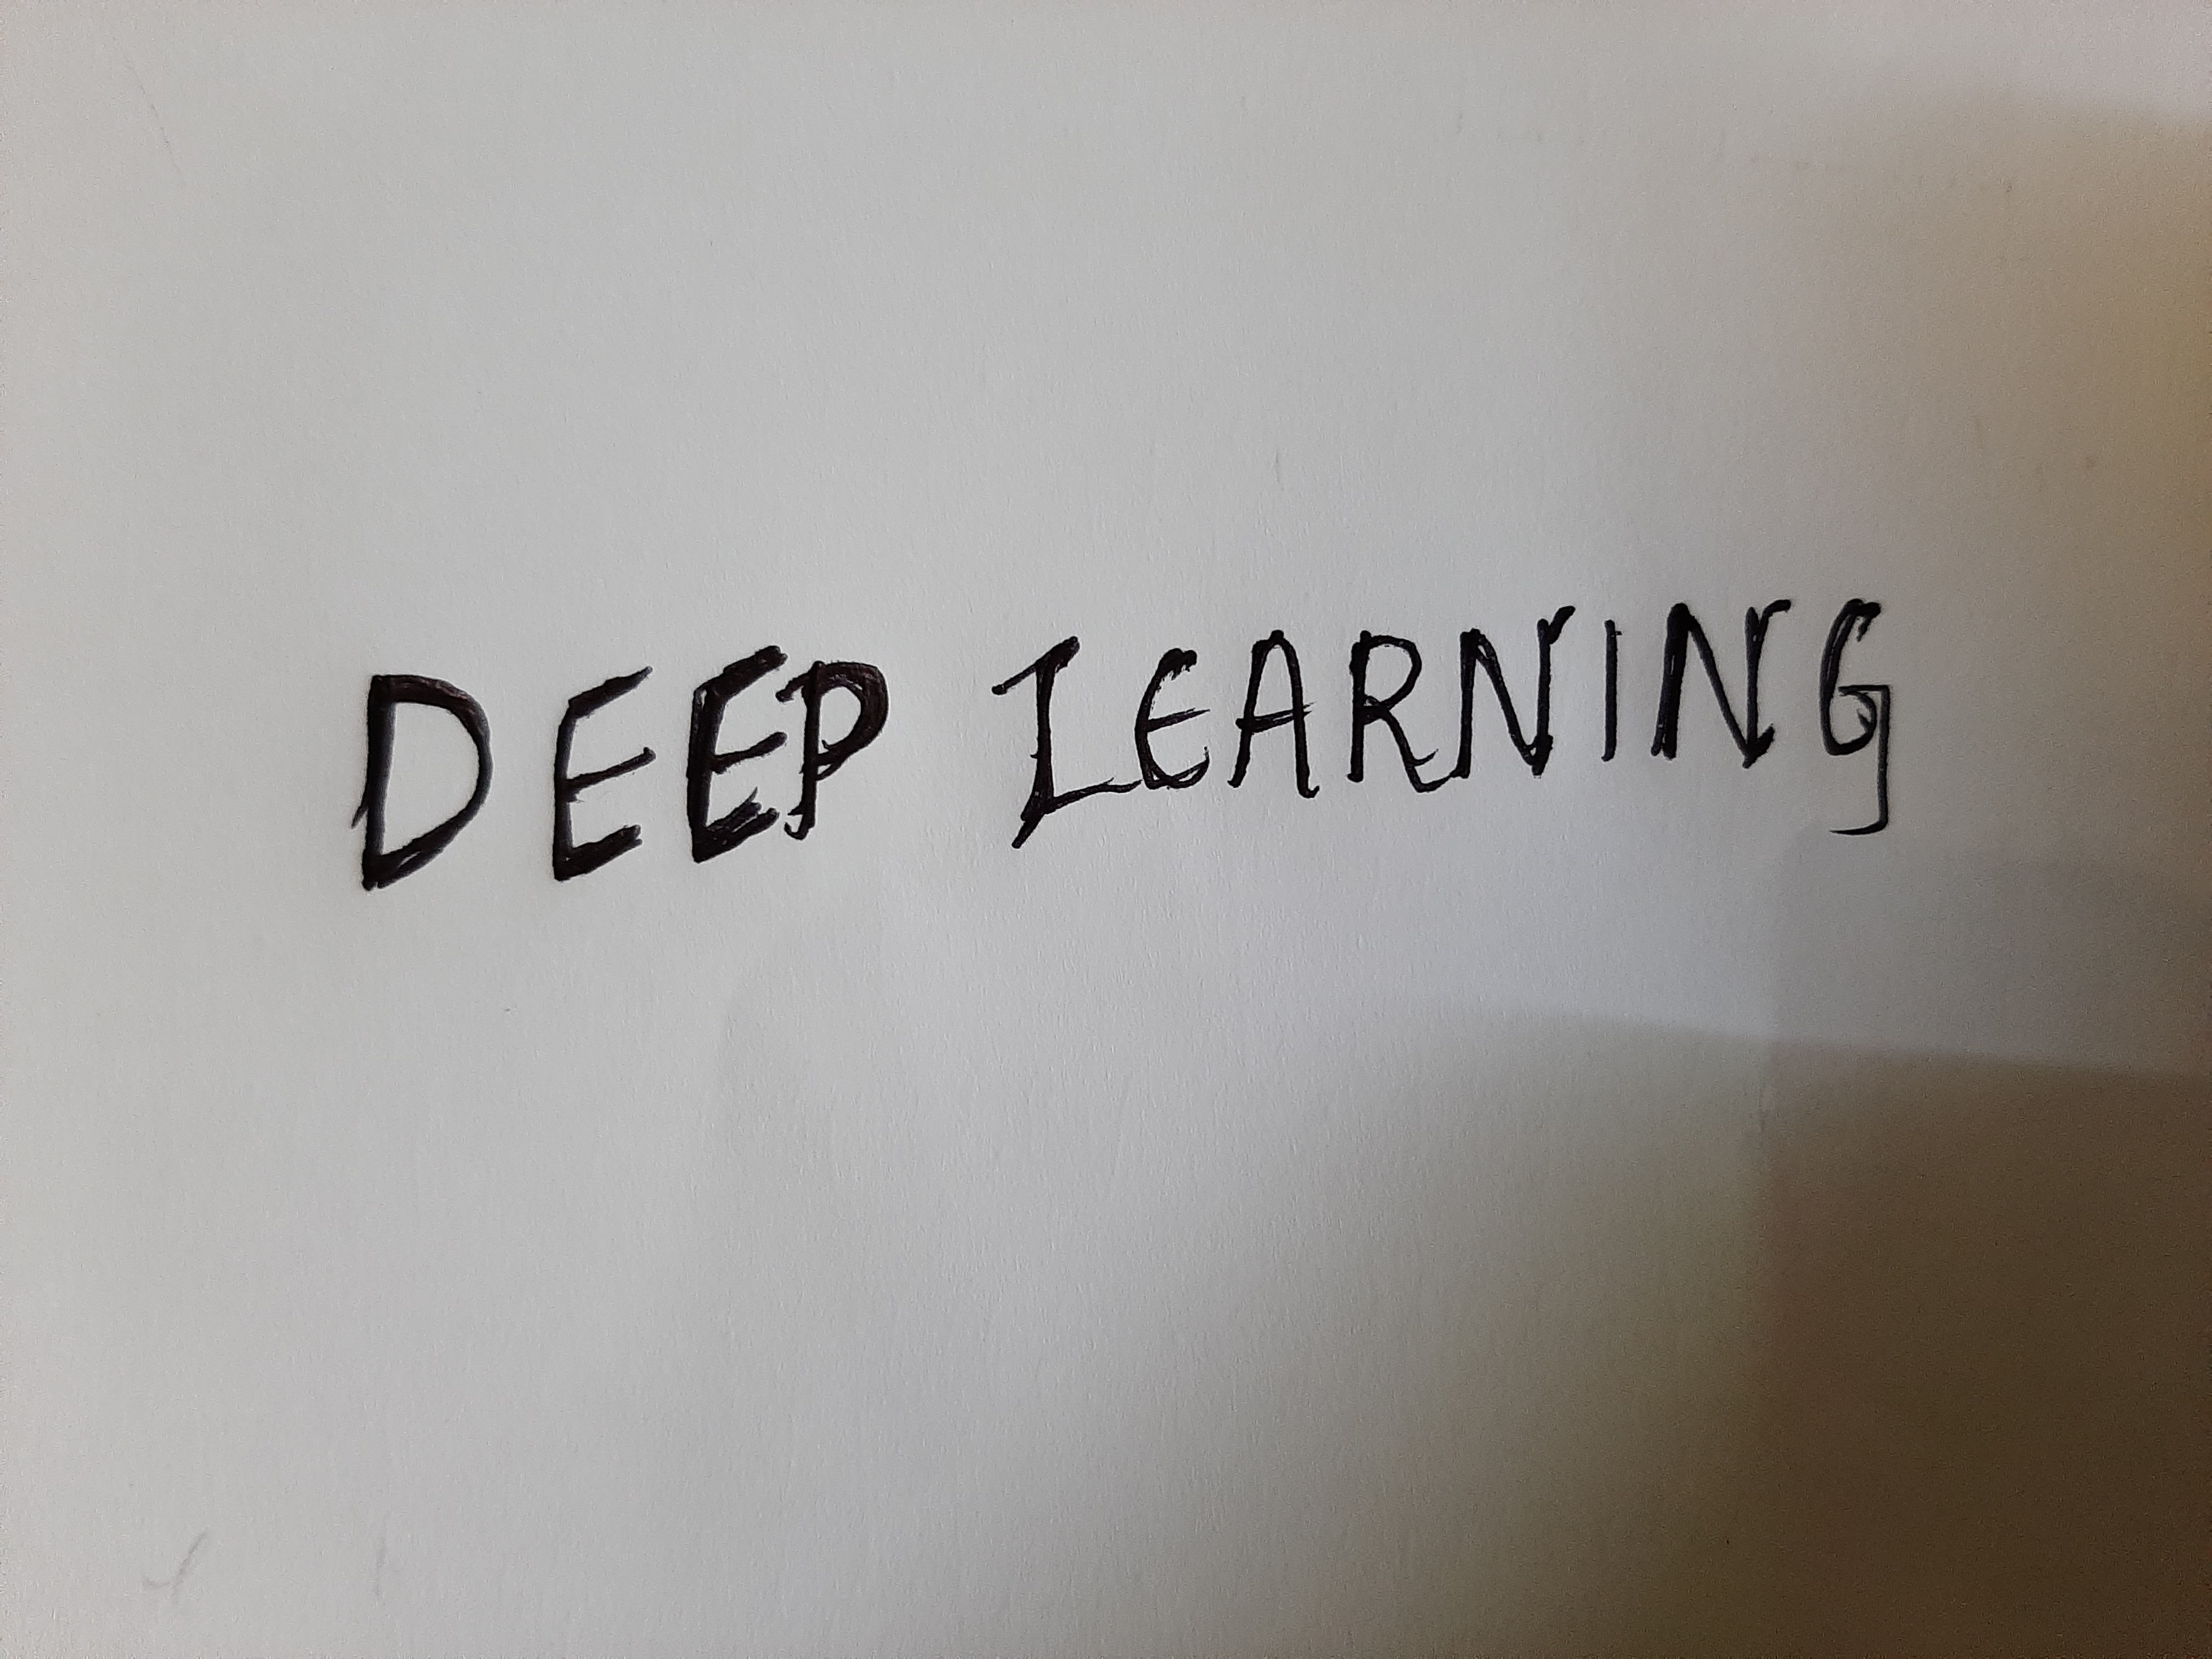 DEEP LEARNING